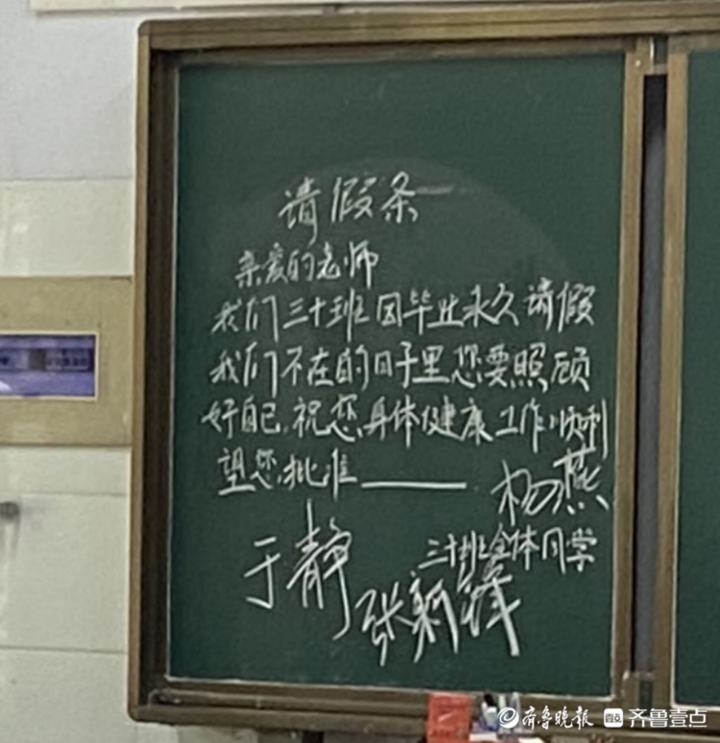 请假条
亲爱的老师
我们三十班因毕业永久请假
我们不在的日子里您要照顾
好自己,祝您身体健康工作顺利
望您批准______
杨燕
三十班全体同学
于静
张新锋
齐鲁晚报 齐鲁壹点